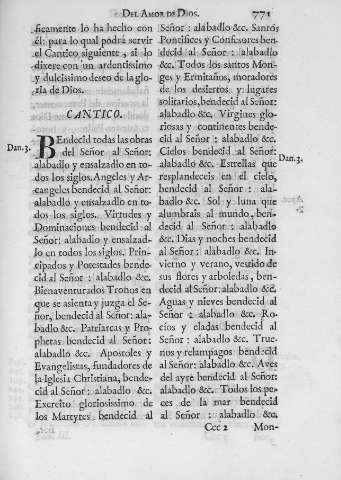 DEL AMOR DE DIOS. 771
ficamente lo ha hecho con
él: para lo qual podrá servir
el Cantico siguiente, si lo
dixere con un ardentissimo
y dulcissimo deseo de la glo-
ria de Dios.
CANTICO.
Dan.3.
BEndecid todas las obras
del Señor al Señor:
alabadlo y ensalzadlo en to-
dos los siglos. Angeles y Ar-
cangeles bendecid al Señor:
alabadlo y ensalzadlo en to-
dos los siglos. Virtudes y
Dominaciones bendecid al
Señor: alabadlo y ensalzad-
lo en todos los siglos. Prin-
cipados y Potestades bende-
cid al Señor: alabadlo &c.
Bienaventurados Tronos en
que se asienta y juzga el Se-
ñor, bendecid al Señor: ala-
badlo &c. Patriarcas y Pro-
phetas bendecid al Señor:
alabadlo &c. Apostoles y
Evangelistas, fundadores de
la Iglesia Christiana, bende-
cid al Señor: alabadlo &c.
Exercito gloriosissimo de
los Martyres bendecid al
Señor: alabadlo &c. Santos
Pontifices y Confessores ben-
decid al Señor: alabadlo
&c. Todos los santos Mon-
ges y Ermitaños, moradores
de los desiertos y lugares
solitarios, bendecid al Señor:
alabadlo &c. Virgines glo-
riosas y continentes bende-
cid al Señor: alabadlo &c.
Cielos bendecid al Señor:
alabadlo &c. Estrellas que
Dan.3.
resplandeceis en el cielo,
bendecid al Señor: ala-
badlo &c. Sol y luna que
alumbrais al mundo, ben-
decid al Señor: alabadlo
&c. Dias y noches bendecid
al Señor: alabadlo &c. In-
vierno y verano, vestido de
sus flores y arboledas, ben-
decid al Señor: alabadlo &c.
Aguas y nieves bendecid al
Señor: alabadlo &c. Ro-
cios y eladas bendecid al
Señor: alabadlo &c. True-
nos y relampagos bendecid
al Señor: alabadlo &c. Aves
del ayre bendecid al Señor:
alabadlo &c. Todos los pe-
ces de la mar bendecid
al Señor: alabadlo &c.
Ccc 2 Mon-